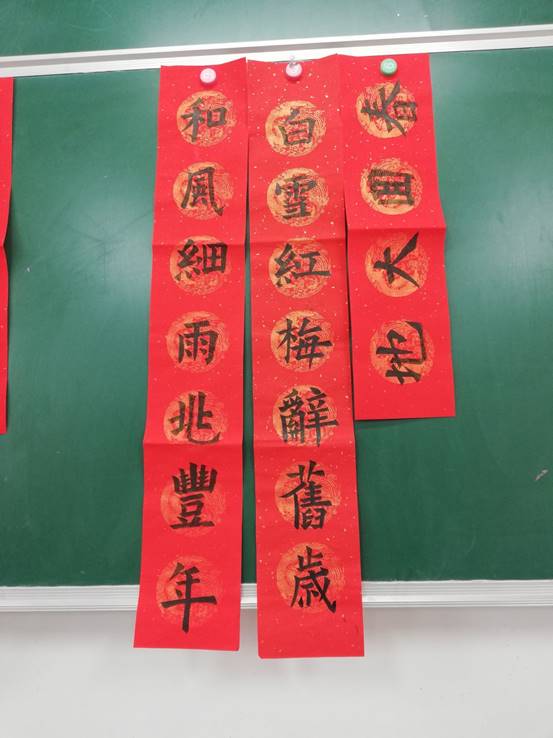 春回大地
白雪紅梅辭舊歲
和風細雨兆豐年